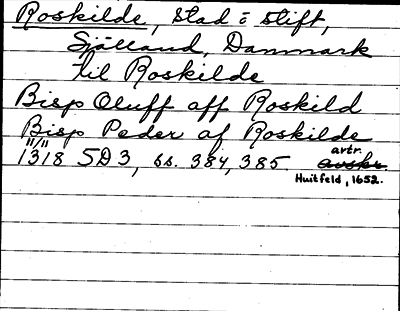 Roskilde, stad i stift,
Själland, Danmark
til Roskilde
Bisp Oluff aff Roskild
Bisp Peder af Roskilde
11/11
1318 SD3, ss. 384, 385 avskr. avtr.
Huitfeld, 1652.